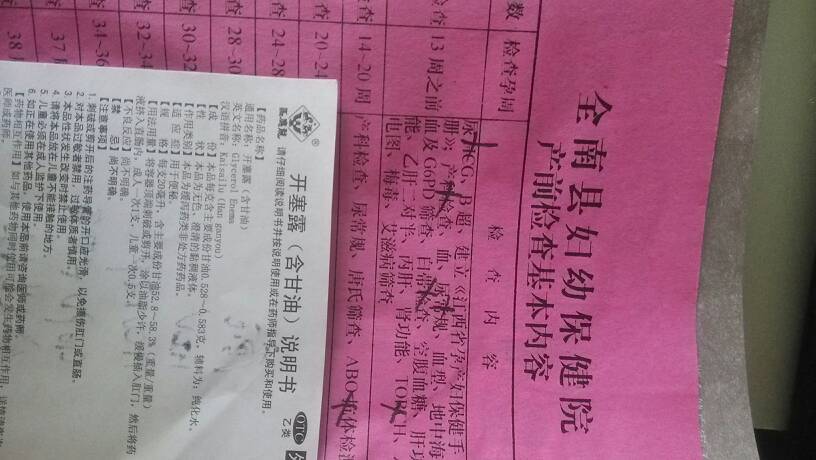 全南县妇幼保健院
产前检查基本内容
数 检查孕周 检查内容
尿HCG、B超、建立《江西省孕产妇保健手
册》；产科检查、血、尿常规、血型、地中海
检查 13周之前 血及G6PD筛查、白带检查、空腹血糖、肝功
能、乙肝二对半、丙肝、肾功能、TORCH、
电图、梅毒、艾滋病筛查
检查 14-20周 产科检查、尿常规、唐氏筛查、ABO抗体检
查 20-24
查 24~28
查 28~30
查 30~32
查 32~34
查 34~36
37周
38周
®
开塞露（含甘油）说明书
OTC
乙类
外
请仔细阅读说明书并按说明使用或在药师指导下购买和使用。
【药品名称】
通用名称：开塞露（含甘油）
英文名称：Glycerol Enema
汉语拼音：Kaisailu (Han ganyou)
【成 份】本品每克含主要成份甘油0.528～0.583克。辅料为：纯化水。
【性 状】本品为无色、澄清的黏稠液体。
【作用类别】本品为缓泻药类非处方药药品。
【适 应 症】用于便秘。
【规 格】每支20毫升，含主要成份甘油52.8～58.3%（重量/重量）
【用法用量】将容器顶端刺破或剪开，涂以油脂少许，缓慢插入肛门，然后将药
液挤入直肠内，成人一次1支，儿童一次0.5支。
【不良反应】尚不明确。
【禁 忌】尚不明确。
【注意事项】
1.刺破或剪开后的注药导管的开口应光滑，以免擦伤肛门或直肠。
2.对本品过敏者禁用，过敏体质者慎用。
3.本品性状发生改变时禁止使用
4.请将本品放在儿童不能接触的地方。
5.儿童必须在成人监护下使用。
6.如正在使用其他药品，使用本品前请咨询医师或药师。
【药物相互作用】如与其他药物同时使用可能会发生药物相互作用，详情请咨询
医师或药师。